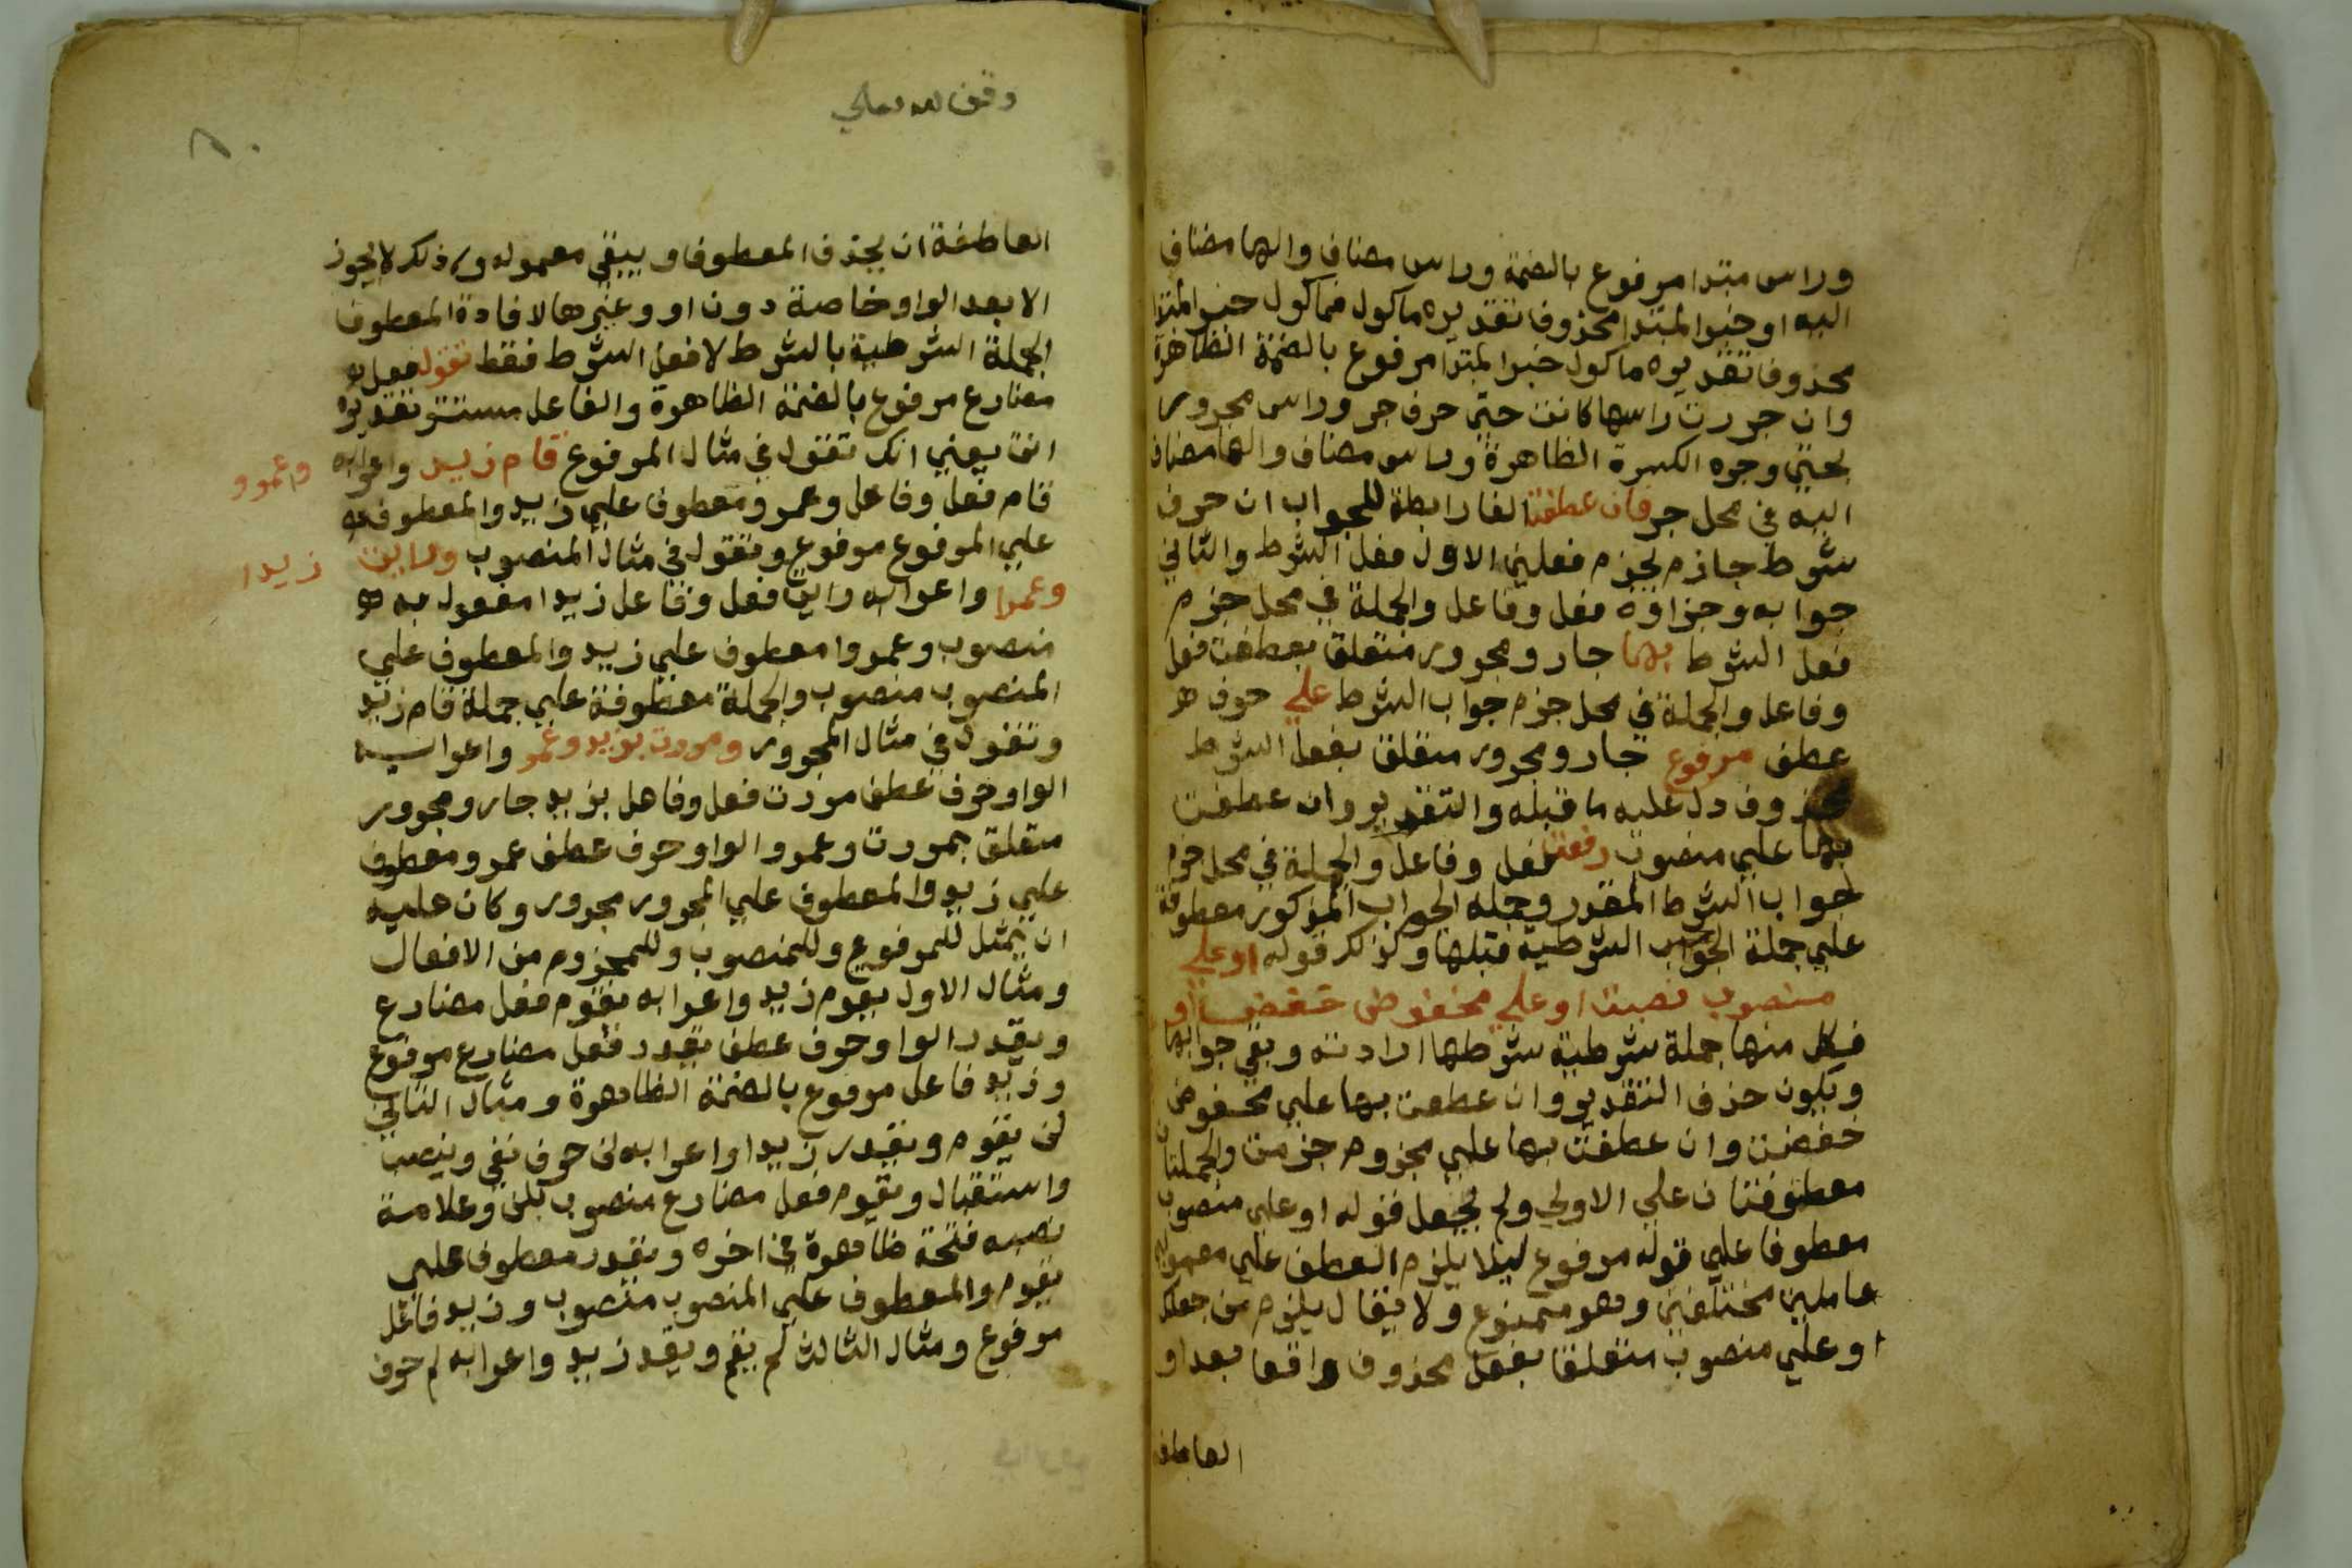 وراس مبتدا مرفوع بالضمة وراس مضاف والها مضاف
اليه او خبر المبتدا محذوف تقديره ماكول فماكول خبر المبتدا
محذوف تقديره ماكول خبر المبتدا مرفوع بالضمة الظاهرة
وان جررت راسها كانت حتى حرف جر وراس مجرور
بحتي وجره الكسرة الظاهرة وراس مضاف والها مضاف
اليه في محل جر فان عطفت الفا رابطة للجواب ان حرف
شرط جازم يجزم فعلين الاول فعل الشرط والثاني
جوابه وجزاوه فعل وفاعل والجملة في محل جزم
فعل الشرط بها جار ومجرور متعلق بعطفت فعل
وفاعل والجملة في محل جزم جواب الشرط علي حرف
عطف مرفوع جار ومجرور متعلق بفعل الشرط
محذوف دل عليه ما قبله والتقدير وان عطفت
بها علي منصوب رفعت فعل وفاعل والجملة في محل جزم
جواب الشرط المقدر وجملة الجواب المذكور معطوفة
علي جملة الجواب الشرطية قبلها وكذلك قوله او علي
منصوب نصبت او علي مخفوض خفضت او
فكل منها جملة شرطية شرطها اداته وبقي جوابها
ويكون حذف التقدير وان عطفت بها علي مخفوض
خفضت وان عطفت بها علي مجزوم جزمت والجملتان
معطوفتان علي الاولي ولم يجعل قوله او علي منصوب
معطوفا علي قوله مرفوع ليلا يلزم العطف علي معمولي
عاملين مختلفين وهو ممنوع ولا يقال يلزم من جعلك
او علي منصوب متعلقا بفعل محذوف واقعا بعد او
العاطفة
وقف لله تعالي
العاطفة ان يحذف المعطوف ويبقي معموله وذلك لا يجوز
الا بعد الواو خاصة دون او وغيرها لافادة المعطوف
الجملة الشرطية بالشرط لا فعل الشرط فقط تقول فعل
مضارع مرفوع بالضمة الظاهرة والفاعل مستتر تقديره
انت يعني انك تقول في مثال المرفوع قام زيد وعمرو واعرابه
قام فعل وفاعل وعمرو معطوف علي زيد والمعطوف
علي المرفوع مرفوع وتقول في مثال المنصوب ورايت زيدا
وعمرا واعرابه رايت فعل وفاعل زيدا مفعول به
منصوب وعمروا معطوف علي زيد والمعطوف علي
المنصوب منصوب والجملة معطوفة علي جملة قام زيد
وتقول في مثال المجرور ومررت بزيد وعمرو واعرابه
الواو حرف عطف مررت فعل وفاعل بزيد جار ومجرور
متعلق بمررت وعمرو الواو حرف عطف عمرو معطوف
علي زيد والمعطوف علي المجرور مجرور وكان عليه
ان يمثل للمرفوع وللمنصوب وللمجزوم من الافعال
ومثال الاول يقوم زيد واعرابه يقوم فعل مضارع
ويقدر الواو حرف عطف يقدر فعل مضارع مرفوع
وزيد فاعل مرفوع بالضمة الظاهرة ومثال الثاني
لن يقوم ويقدر زيدا واعرابه لن حرف نفي وينصب
واستقبال ويقوم فعل مضارع منصوب بلن وعلامة
نصبه فتحة ظاهرة في اخره ويقدر معطوف علي
يقوم والمعطوف علي المنصوب منصوب وزيد فاعل
مرفوع ومثال الثالث لم يقم ويقد زيد واعرابه لم حرف